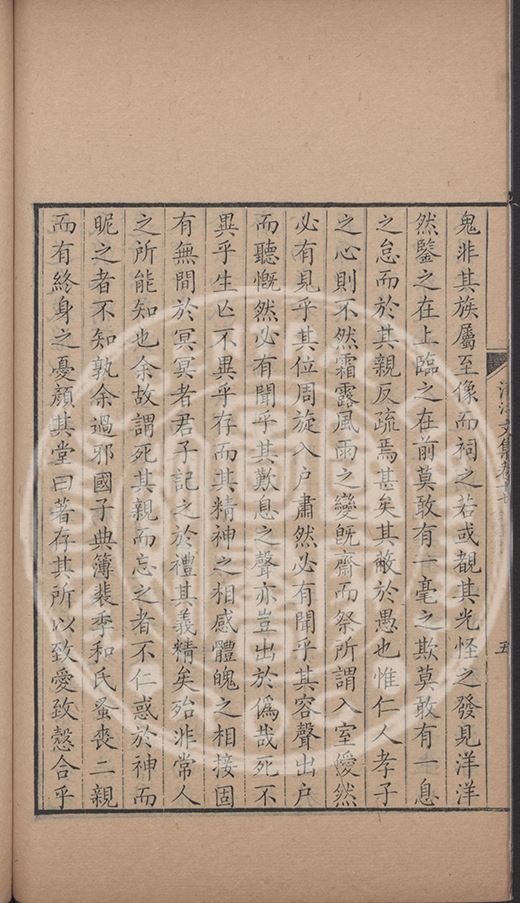 鬼非其族屬至像而祠之若或覩其光怪之發見洋洋
然鑒之在上臨之在前莫敢有一毫之欺莫敢有一息
之怠而於其親反疏焉甚矣其敝於愚也惟仁人孝子
之心則不然霜露風雨之變旣齋而祭所謂入室僾然
必有見乎其位周旋入户肅然必有聞乎其容聲出户
而聽慨然必有聞乎其歎息之聲亦豈出於僞哉死不
異乎生亡不異乎存而其精神之相感體魄之相接固
有無間於冥冥者君子記之於禮其義精矣殆非常人
之所能知也余故謂死其親而忘之者不仁惑於神而
昵之者不知孰余過邪國子典簿裴季和氏蚤喪二親
而有終身之憂顏其堂曰著存其所以致愛致慤合乎
文集卷
五